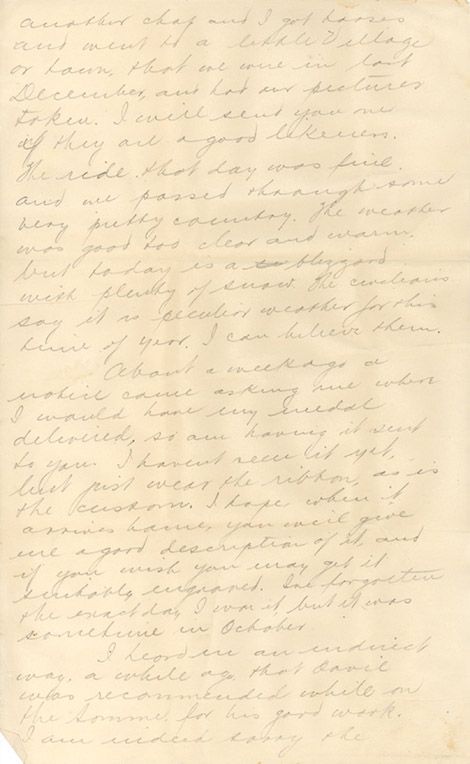 another chap and I got horses
and went to a little village
or town, that we were in last
December, and had our pictures
taken. I will send you one
if they are a good likeness.
The ride that day was fine
and we passed through some
very pretty country. The weather
was good too clear and warm.
but today is a blizzard
with plenty of snow. The civilians
say it is peculior weather for this
time of year. I can believe them.
About a week ago a
notice came asking me where
I would have my medal
delivered, so am having it sent
to you. I havent seen it yet,
but just wear the ribbon, as is
the custom. I hope when it
arrives home, you will give
me a good description of it, and
if you wish you may get it
suitably engraved. Ive forgotten
the exact day I won it, but it was
sometime in October
I heard in an indirect
way, a while ago that David
was recommended while on
the Somme for his good work.
I am indeed sorry the